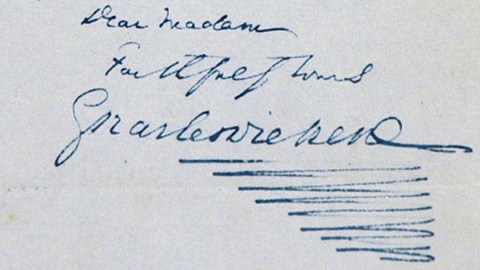 Dear Madam
Faithfully Yours
Charles Dickens